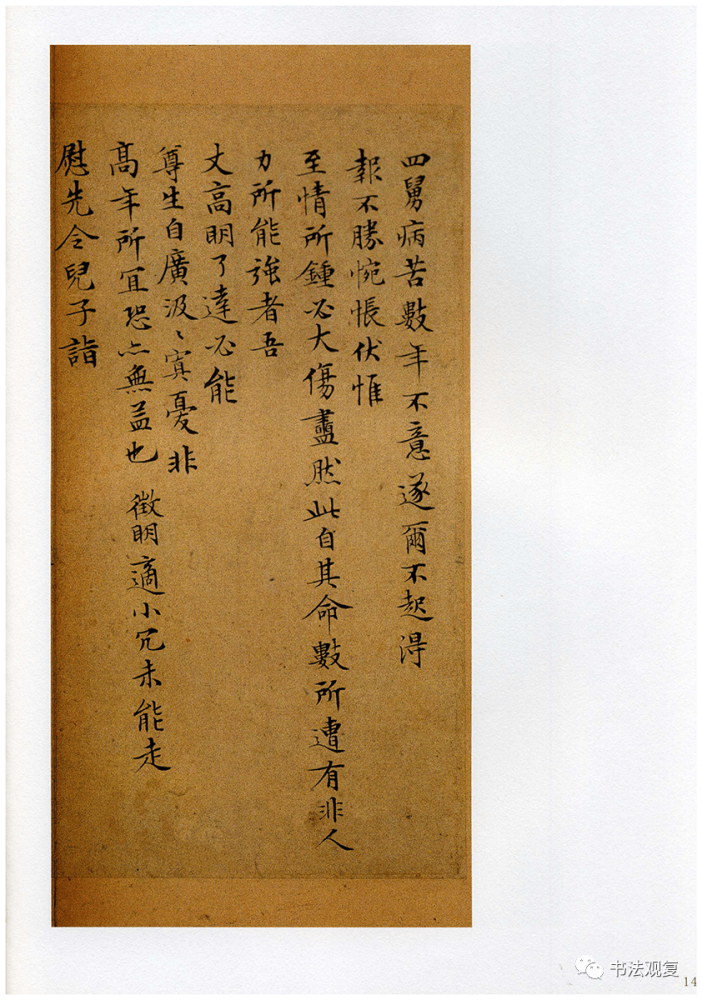 四舅病苦數年不意遂爾不起得
報不勝惋悵伏惟
至情所鍾必大傷盡然此自其命數所遭有非人
力所能強者吾
丈高明了達必能
尊生自廣汲〻寘憂非
高年所宜恐亦無益也 徵明適小冗未能走
慰先令兒子詣
书法观复
14